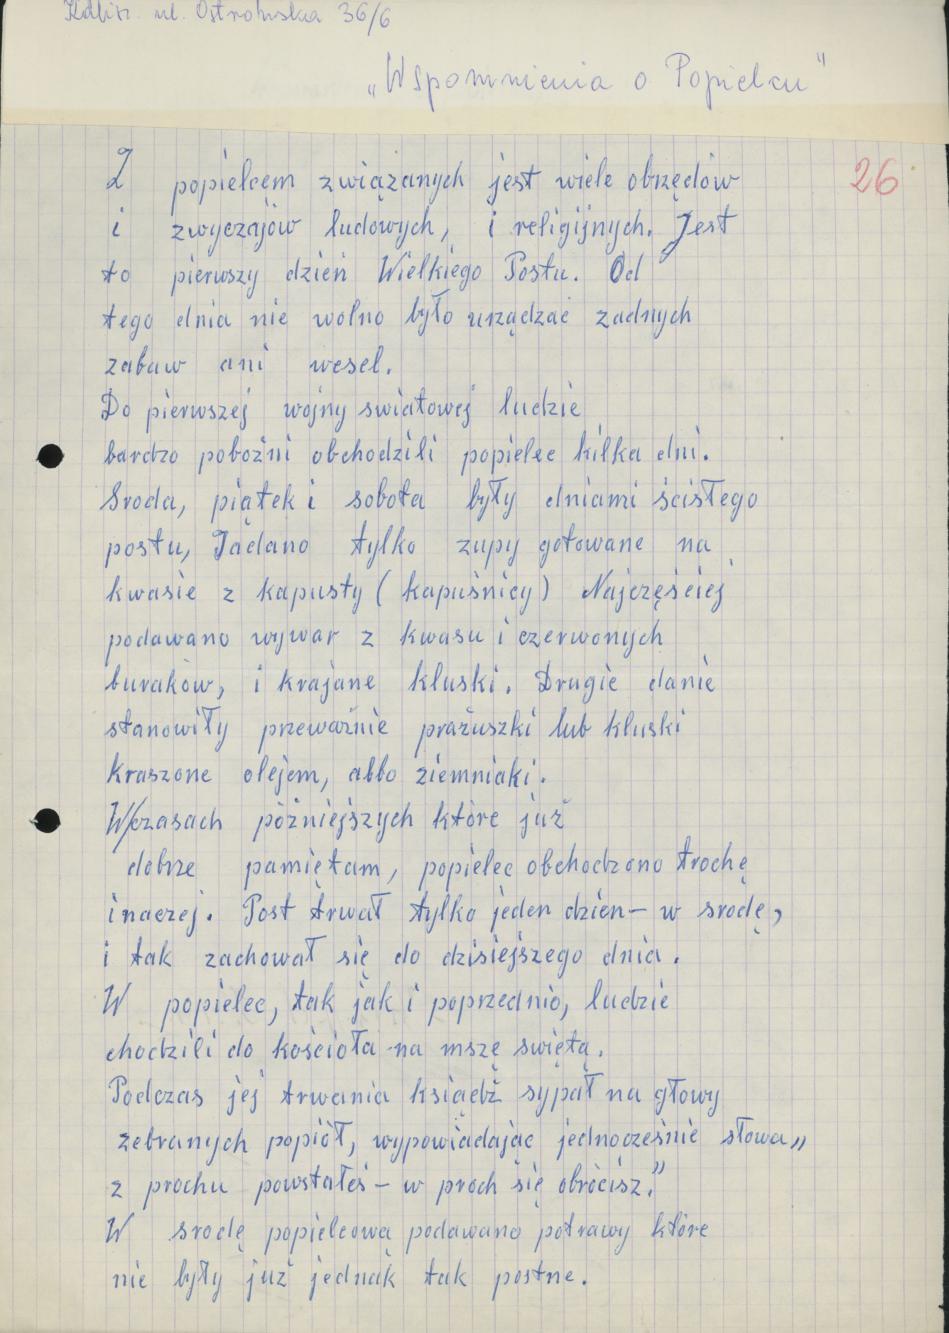 ul. Ostrowska 36/6
„Wspomnienia o Popielcu"
26
Z popielcem związanych jest wiele obrzędów
i zwyczajów ludowych, i religijnych. Jest
to pierwszy dzień Wielkiego Postu. Od
tego dnia nie wolno było urządzać żadnych
zabaw ani wesel.
Do pierwszej wojny swiatowej ludzie
bardzo pobożni obchodzili popielec kilka dni.
Sroda, piątek i sobota były dniami ścisłego
postu, Jadano tylko zupy gotowane na
kwasie z kapusty (kapuśnicy) Najczęściej
podawano wywar z kwasu i czerwonych
buraków, i krajane kluski. Drugie danie
stanowiły przeważnie prażuszki lub kluski
kraszone olejem, albo ziemniaki.
W/czasach późniejszych które już
dobrze pamiętam, popielec obchodzono trochę
inaczej. Post trwał tylko jeden dzień – w srodę,
i tak zachował się do dzisiejszego dnia.
W popielec, tak jak i poprzednio, ludzie
chodzili do kościoła na mszę świętą.
Podczas jej trwania ksiądz sypał na głowy
zebranych popiół, wypowiadając jednocześnie słowa„
z prochu powstałeś – w proch się obrócisz."
W srodę popielcową podawano potrawy które
nie były już jednak tak postne.